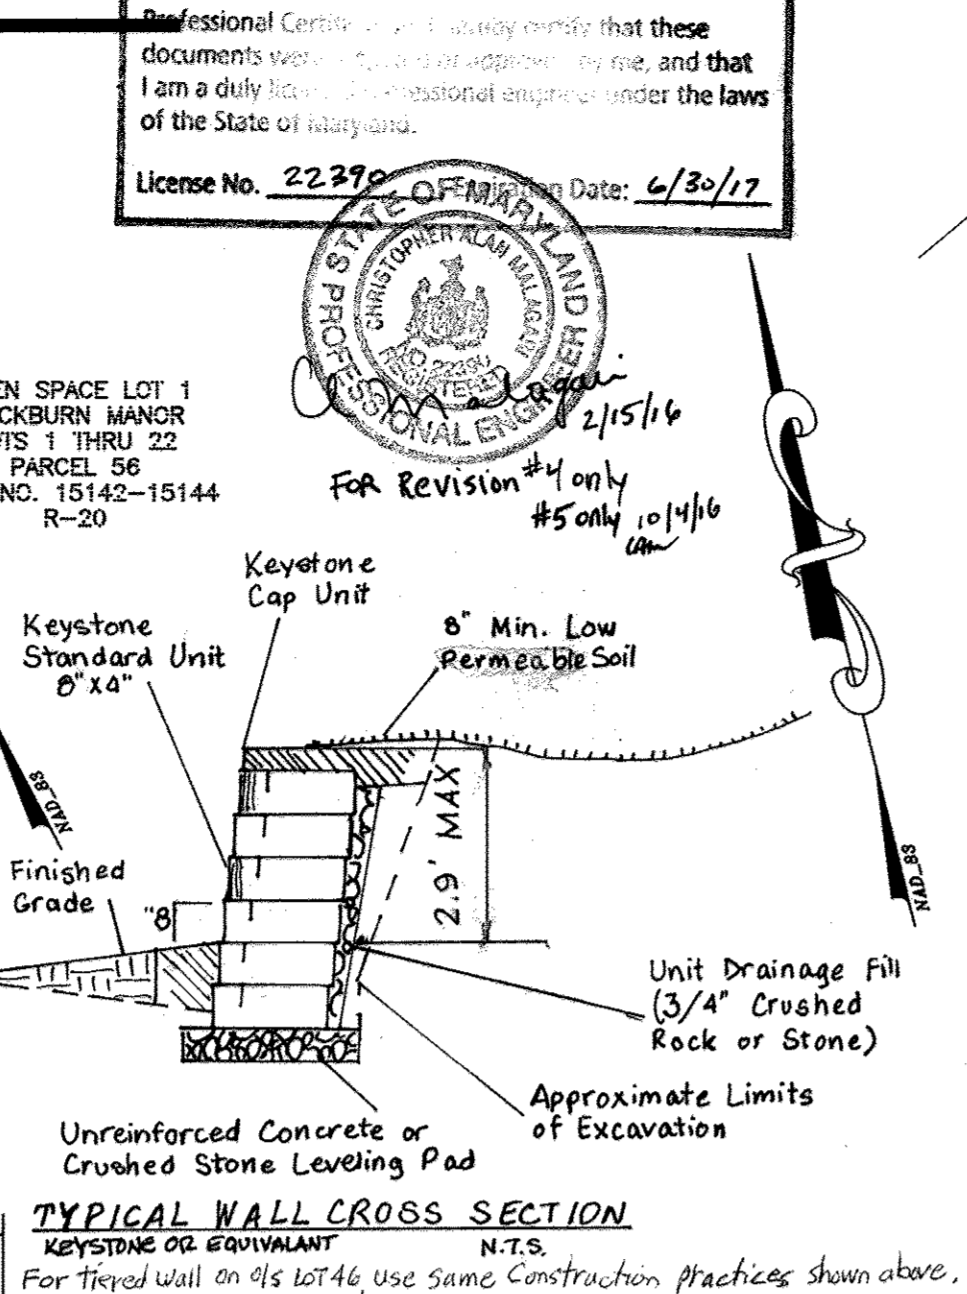 Professional Certification. I hereby certify that these
documents were prepared or approved by me, and that
I am a duly licensed professional engineer under the laws
of the State of Maryland.
License No. 22390 Expiration Date: 6/30/17
STATE OF MARYLAND
PROFESSIONAL ENGINEER
CHRISTOPHER ALAN MALAGARI
NO. 22390
REGISTERED
2/15/16
FOR Revision #4 only
#5 only 10/4/16
CAM
EN SPACE LOT 1
CKBURN MANOR
TS 1 THRU 22
PARCEL 56
NO. 15142-15144
R-20
Keystone
Cap Unit
Keystone
Standard Unit
8" X 4"
8" Min. Low
Permeable Soil
NAD_83
2.9' MAX
NAD_83
Finished
Grade
"8
Unit Drainage Fill
(3/4" Crushed
Rock or Stone)
Approximate Limits
of Excavation
Unreinforced Concrete or
Crushed Stone Leveling Pad
TYPICAL WALL CROSS SECTION
KEYSTONE OR EQUIVALANT N.T.S.
For tiered wall on o/s LOT 46 use same Construction practices shown above.